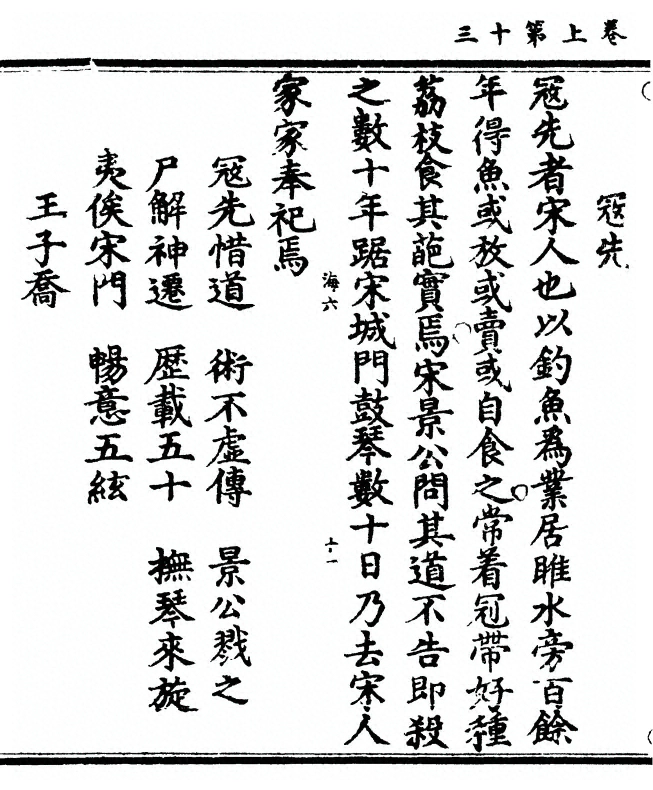 卷上第十三
寇先
寇先者宋人也以釣魚爲業居睢水旁百餘
年得魚或放或賣或自食之常着冠帶好種
荔枝食其葩實焉宋景公問其道不告即殺
之數十年踞宋城門鼓琴數十日乃去宋人
海六
十一
家家奉祀焉
寇先惜道 術不虛傳 景公戮之
尸解神遷 歷載五十 撫琴來旋
夷俟宋門 暢意五絃
王子喬